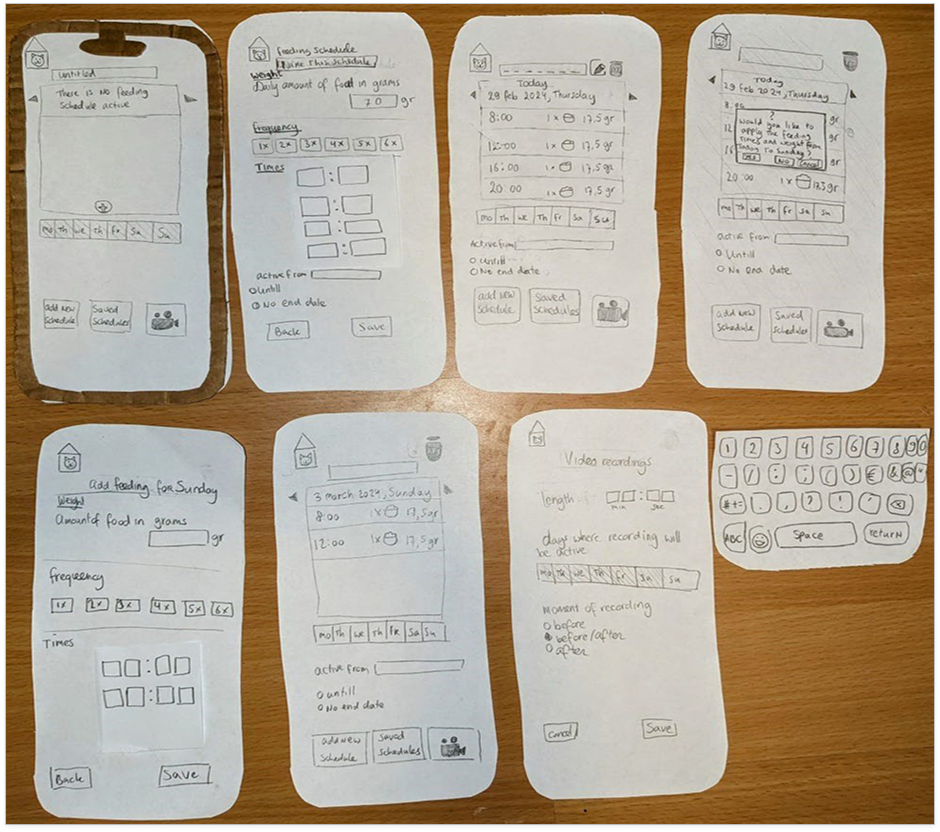 untitled
There is No feeding
Schedule active
mo Th We Th Fr Sa Su
add New
Schedule
Saved
Schedules
feeding schedule
Name this schedule
Weight
Daily amount of food in grams
70 gr
frequency
1x 2x 3x 4x 5x 6x
Times
:
:
:
:
active from
untill
No end date
Back Save
Today
29 feb 2024, Thursday
8:00 1x 17,5 gr
12:00 1x 17,5 gr
16:00 1x 17,5 gr
20:00 1x 17,5 gr
mo Th We Th Fr Sa Su
Active from
untill
No end date
add New
Schedule
Saved
Schedules
Today
29 feb 2024, Thursday
8:00
gr
12
gr
16
gr
?
Would you like to
apply the feeding
times and weight from
Today to Sunday?
Yes No Cancel
20:00 1x 17,5 gr
mo Th We Th Fr Sa Su
active from
Untill
No end date
add New
Schedule
Saved
Schedules
Add feeding for Sunday
Weight
Amount of food in grams
gr
frequency
1x 2x 3x 4x 5x 6x
Times
:
:
Back Save
3 march 2024, Sunday
8:00 1x 17,5 gr
12:00 1x 17,5 gr
mo Th We Th Fr Sa Su
active from
untill
No end date
add new
Schedule
Saved
Schedules
Video recordings
length :
min sec
days where recording will
be active
mo Th We Th Fr Sa Su
Moment of recording
before
before/after
after
Cancel Save
1 2 3 4 5 6 7 8 9 0
- / : ; ( ) € & @ "
#+= . , ? ! '
ABC Space return